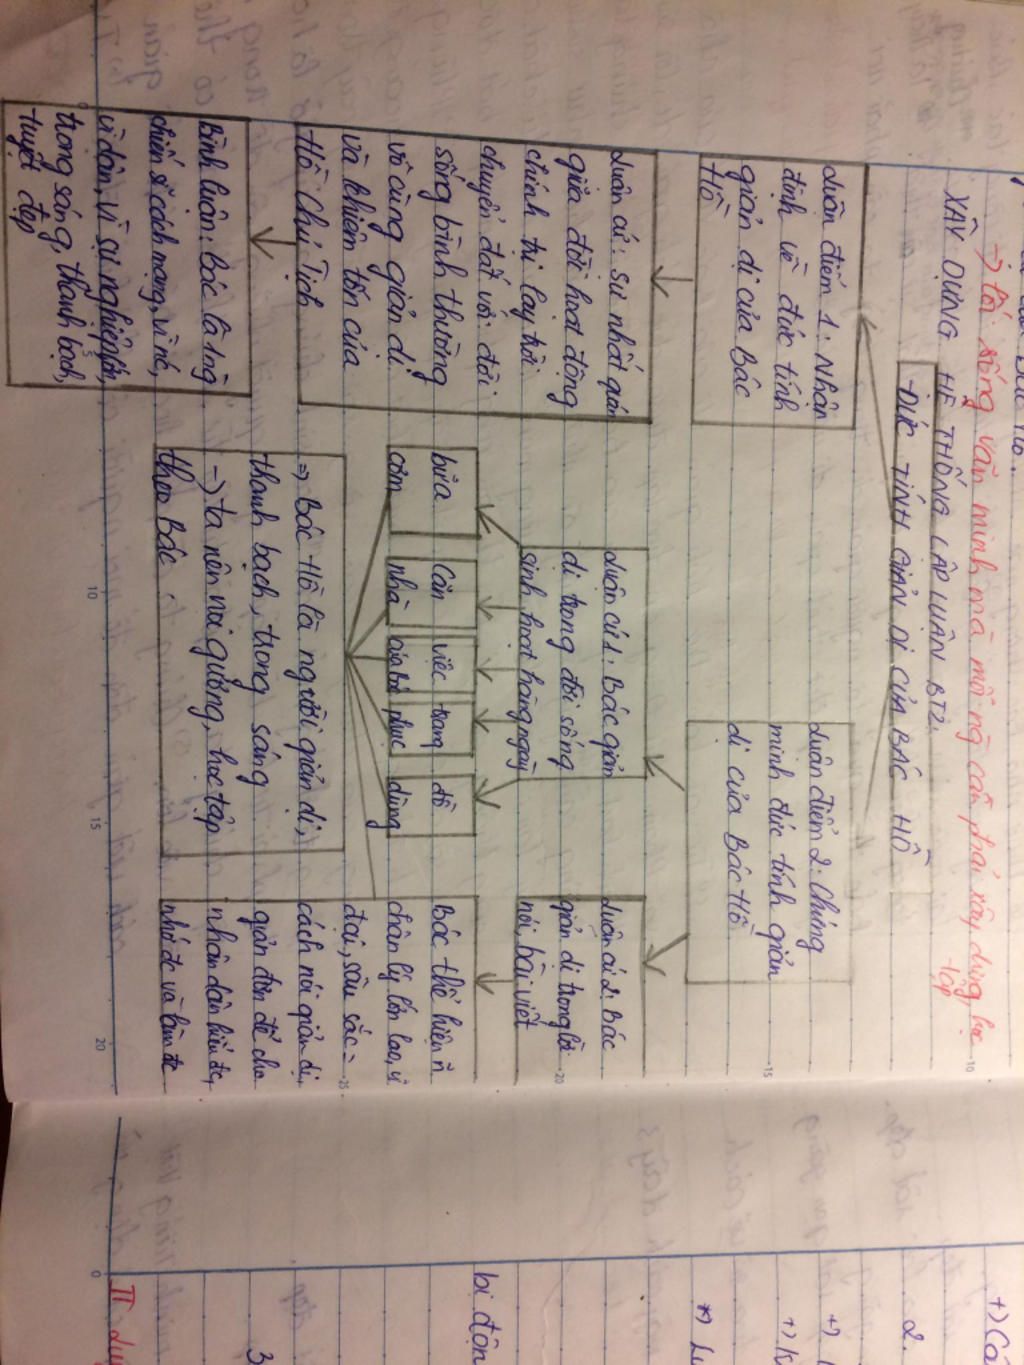 → lối sống văn minh mà mỗi ng̀ cần phải xây dựng, học
tập
XÂY DỰNG HỆ THỐNG LẬP LUẬN BT2.
-ĐỨC TÍNH GIẢN DỊ CỦA BÁC HỒ
Luận điểm 1: Nhận
định về đức tính
giản dị của Bác
Hồ
Luận cứ: Sự nhất quán
giữa đời hoạt động
chính trị lay trời
chuyển đất với đời
sống bình thường
vô cùng giản dị
và khiêm tốn của
Hồ Chủ Tịch
Bình luận: Bác là 1 ng̀
chiến sĩ cách mạng, vì nc,
vì dân, vì sự nghiệp lớn,
trong sáng, thanh bạch,
tuyệt đẹp
Luận điểm 2: Chứng
minh đức tính giản
dị của Bác Hồ
Luận cứ 1: Bác giản
dị trong đời sống
sinh hoạt hàng ngày
bữa
cơm
Căn
nhà
việc
của bác
trang
phục
đồ
dùng
⇒ Bác Hồ là người giản dị,
thanh bạch, trong sáng
→ ta nên noi gương, học tập
theo Bác.
Luận cứ 2: Bác
giản dị trong lời
nói, bài viết
Bác thể hiện ~
chân lý lớn lao, vĩ
đại, sâu sắc =
cách nói giản dị,
giản đơn để cho
nhân dân hiểu đc,
nhớ đc và làm đc
+) Cá
2.
+)
+) K
*) Lu
bị độn
3
II Luy